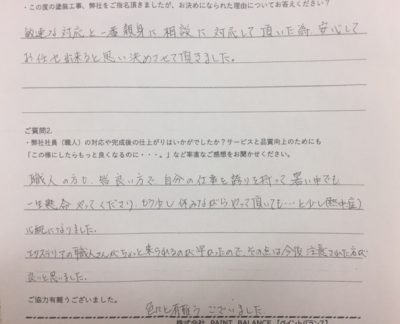 ・この度の塗装工事、弊社をご指名頂きましたが、お決めになられた理由についてお答えください？
敏速な対応と一番親身に相談に対応して頂いた為 安心して
お任せ出来ると思い決めさせて頂きました。
ご質問2.
・弊社社員（職人）の対応や完成後の仕上がりはいかがでしたか？サービスと品質向上のためにも
「この様にしたらもっと良くなるのに・・・。」など率直なご感想をお聞かせください。
職人の方も、皆良い方で、自分の仕事を誇りを持って 暑い中でも
一生懸命 やってくださり、もう少し休みながらやって頂いても…と少し(熱中症)
心配になりました。
エクステリアの職人さんがちょっと来られるのが早かったので、その点は今後 注意された方が
良いと思いました。
ご協力有難うございました。
色々と有難う ございました
株式会社 PAINT BALANCE【ペイントバランス】